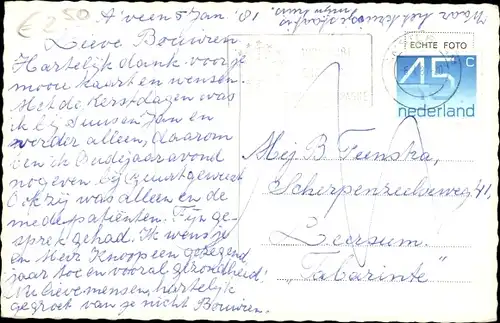 € 2,50
A'veen 5 Jan. '81
Waar het kruisje
Lieve Bouwien.
Hartelijk dank voor je
mooie kaart en wensen.
Met de Kerstdagen was
ik bij Jan en
verder alleen, daarom
ben ik Oudejaaravond
nog even bij geweest
Ook zij was alleen en de
medepatiënten. Fijn ge-
sprek gehad. Ik wens je
en Heer Knoop een gezegend
jaar toe en vooral gezondheid!
Nu lieve mensen, hartelijk
gegroet van je nicht Bouwien.
ECHTE FOTO
45 c
nederland
Mej B Feenstra,
Scherpenzeelseweg 41,
Leersum.
"Tabarinte"